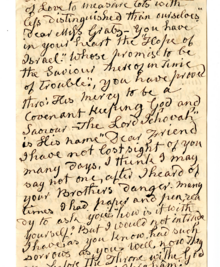 of Love to measure lots with
less distinguished than ourselves"
Dear Miss Gratz - You have
in your heart the Hope of
Israel" Whose promise to be
the Saviour thereof in time
of Trouble", you have proved
thro' His mercy to be a
Covenant Keeping God and
Saviour - The Lord Jehovah
is His name" Dear Friend
I have not lost sight of you
many days, I think I may
say not one, after I heard of
your Brothers danger. Many
times I had paper and pen
dy to ask you how is it with
yourself? But I would not intrude
I have as you know, had such
sorrows as yours well now
before the Throne with